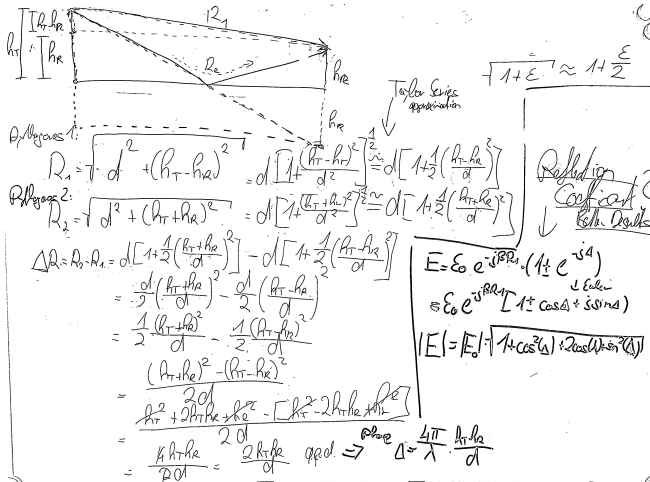 h_T h_T-h_R h_R R_1
R_2 h_R
h_R
√(1+ε) ≈ 1+ε/2
Taylor Series
approximation
Pythagoras 1:
R_1 = √(d² + (h_T-h_R)²) = d[1+(h_T-h_T)²/d²]^(1/2) ≅ d[1+1/2((h_T-h_R)/d)²]
Pythagoras 2:
R_2 = √(d² + (h_T+h_R)²) = d[1+(h_T+h_R)²/d²]^(1/2) ≅ d[1+1/2((h_T+h_R)/d)²]
ΔR = R_2-R_1 = d[1+1/2((h_T+h_R)/d)²] - d[1+1/2((h_T-h_R)/d)²]
= d/2((h_T+h_R)/d)² - d/2((h_T-h_R)/d)²
= 1/2 (h_T+h_R)²/d - 1/2 (h_T-h_R)²/d
= ((h_T+h_R)² - (h_T-h_R)²)/2d
= (h_T² + 2h_Th_R + h_R² - [h_T² - 2h_Th_R + h_R²])/2d
= 4h_Th_R/2d = 2h_Th_R/d q.e.d. => phase Δ = 4π/λ · h_Th_R/d
Reflection
Coefficient
Better Results
E = E_0 e^(-jβR_1) · (1 ± e^(-jΔ))
↓ Euler
= E_0 e^(-jβR_1) [1 ± cosΔ + jsinΔ]
|E| = |E_0| · √(1+cos²(Δ)+2cos(Δ)+sin²(Δ))